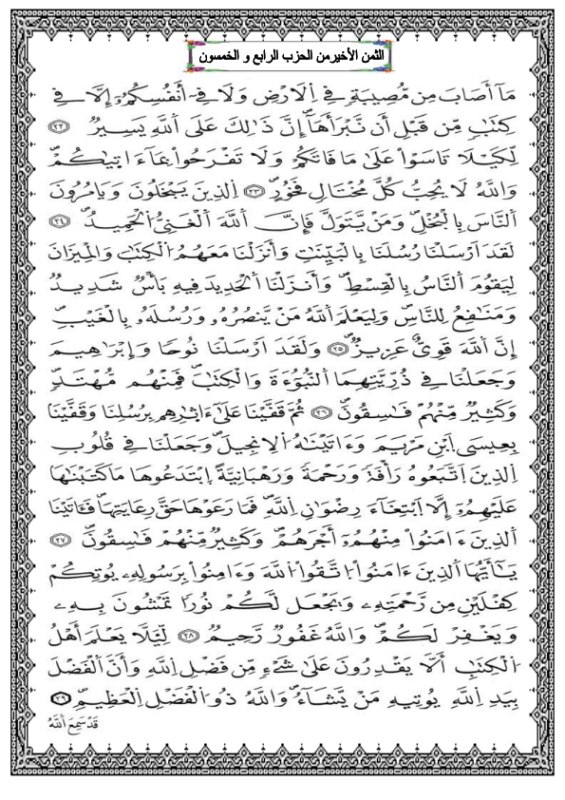 الثمن الأخير من الحزب الرابع و الخمسون
مَآ أَصَابَ مِن مُّصِيبَةٍ فِے اِ۬لَارْضِ وَلَا فِےٓ أَنفُسِكُمُۥٓ إِلَّا فِے
كِتَٰبٍ مِّن قَبْلِ أَن نَّبْرَأَهَآۖ إِنَّ ذَٰلِكَ عَلَى اَ۬للَّهِ يَسِيرٞ ٢٢
لِّكَيْلَا تَاسَوْاْ عَلَىٰ مَا فَاتَكُمْ وَلَا تَفْرَحُواْ بِمَآ ءَاتٜيٰكُمْۖ
وَاللَّهُ لَا يُحِبُّ كُلَّ مُخْتَالٖ فَخُورٍۖ ٢٣ اِ۬لذِينَ يَبْخَلُونَ وَيَامُرُونَ
اَ۬لنَّاسَ بِالْبُخْلِۖ وَمَنْ يَّتَوَلَّ فَإِنَّ اَ۬للَّهَ اَ۬لْغَنِيُّ اُ۬لْحَمِيدُۖ ٢٤
لَقَدَ اَرْسَلْنَا رُسُلَنَا بِالْبَيِّنَٰتِ وَأَنزَلْنَا مَعَهُمُ اُ۬لْكِتَٰبَ وَالْمِيزَانَ
لِيَقُومَ اَ۬لنَّاسُ بِالْقِسْطِۖ وَأَنزَلْنَا اَ۬لْحَدِيدَ فِيهِ بَأْسٞ شَدِيدٞ
وَمَنَٰفِعُ لِلنَّاسِۖ وَلِيَعْلَمَ اَ۬للَّهُ مَنْ يَّنصُرُهُۥ وَرُسُلَهُۥ بِالْغَيْبِۖ
إِنَّ اَ۬للَّهَ قَوِيٌّ عَزِيزٞۖ ٢٥ وَلَقَدَ اَرْسَلْنَا نُوحاٗ وَإِبْرَٰهِيمَ
وَجَعَلْنَا فِے ذُرِّيَّتِهِمَا اَ۬لنُّبُوٓءَةَ وَالْكِتَٰبَۖ فَمِنْهُم مُّهْتَدٖۖ
وَكَثِيرٞ مِّنْهُمْ فَٰسِقُونَۖ ٢٦ ثُمَّ قَفَّيْنَا عَلَىٰٓ ءَاثٰ۪رِهِم بِرُسُلِنَا وَقَفَّيْنَا
بِعِيسَى اَ۪بْنِ مَرْيَمَ وَءَاتَيْنَٰهُ اُ۬لِانجِيلَۖ وَجَعَلْنَا فِے قُلُوبِ
اِ۬لذِينَ اَ۪تَّبَعُوهُ رَأْفَةٗ وَرَحْمَةٗۖ وَرَهْبَانِيَّةً اِ۪بْتَدَعُوهَا مَا كَتَبْنَٰهَا
عَلَيْهِمُۥٓ إِلَّا اَ۪بْتِغَآءَ رِضْوَٰنِ اِ۬للَّهِۖ فَمَا رَعَوْهَا حَقَّ رِعَايَتِهَاۖ فَـَٔاتَيْنَا
اَ۬لذِينَ ءَامَنُواْ مِنْهُمُۥٓ أَجْرَهُمْۖ وَكَثِيرٞ مِّنْهُمْ فَٰسِقُونَۖ ٢٧
يَٰٓأَيُّهَا اَ۬لذِينَ ءَامَنُواْ اُ۪تَّقُواْ اُ۬للَّهَ وَءَامِنُواْ بِرَسُولِهِۦ يُوتِكُمْ
كِفْلَيْنِ مِن رَّحْمَتِهِۦ وَيَجْعَل لَّكُمْ نُوراٗ تَمْشُونَ بِهِۦ
وَيَغْفِرْ لَكُمْۖ وَاللَّهُ غَفُورٞ رَّحِيمٞۖ ٢٨ لِّيَلَّا يَعْلَمَ أَهْلُ
اُ۬لْكِتَٰبِ أَلَّا يَقْدِرُونَ عَلَىٰ شَےْءٖ مِّن فَضْلِ اِ۬للَّهِ وَأَنَّ اَ۬لْفَضْلَ
بِيَدِ اِ۬للَّهِ يُوتِيهِ مَنْ يَّشَآءُۖ وَاللَّهُ ذُو اُ۬لْفَضْلِ اِ۬لْعَظِيمِۖ ٢٩
قَدْ سَمِعَ اَ۬للَّهُ